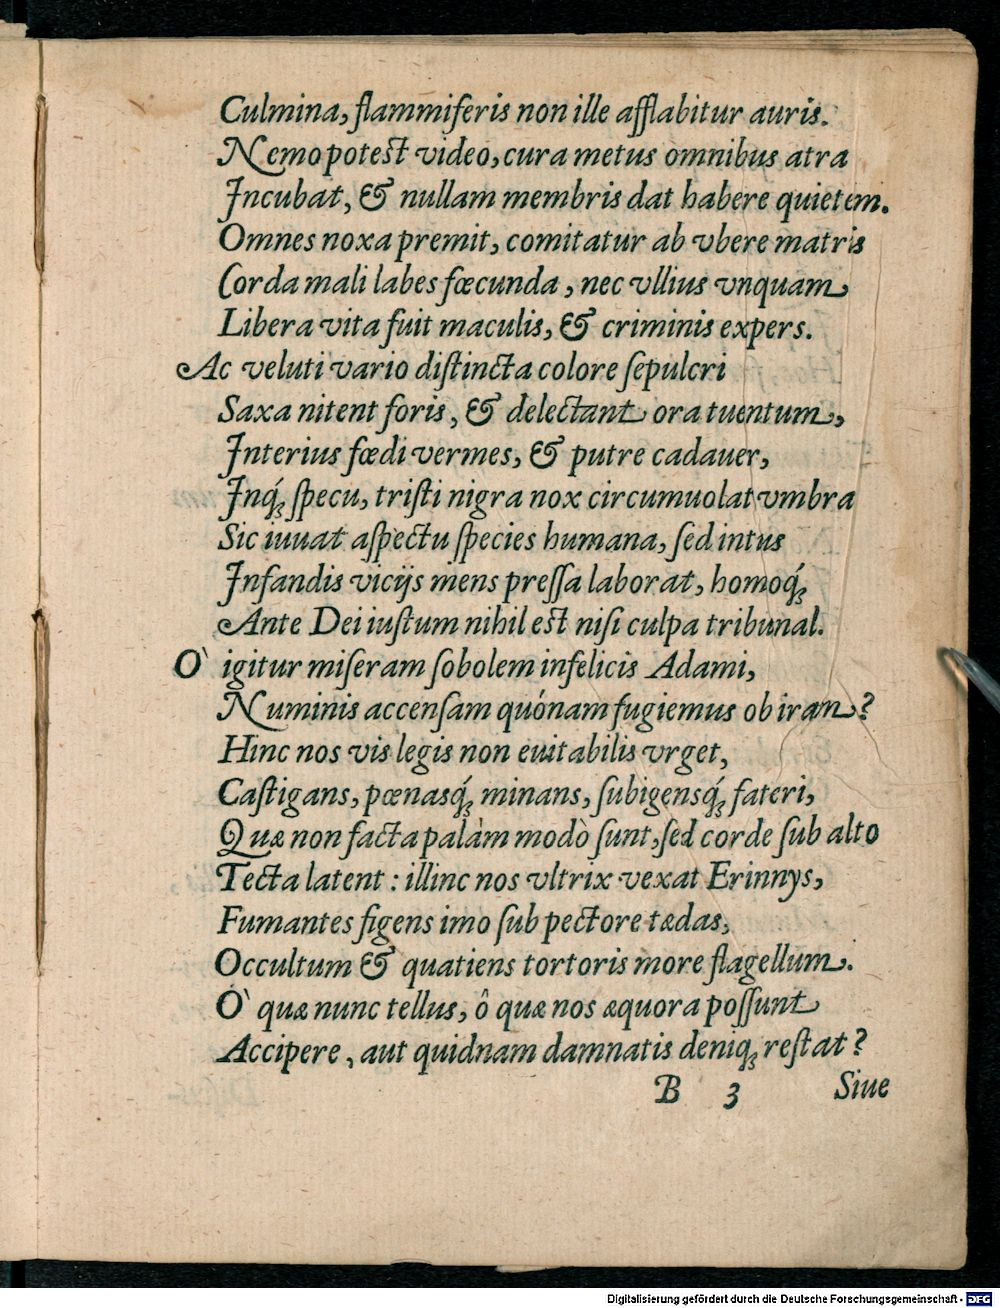 Culmina, flammiferis non ille afflabitur auris.
Nemo potest video, cura metus omnibus atra
Incubat, & nullam membris dat habere quietem.
Omnes noxa premit, comitatur ab vbere matris
Corda mali labes fœcunda, nec vllius vnquam
Libera vita fuit maculis, & criminis expers.
Ac veluti vario distincta colore sepulcri
Saxa nitent foris, & delectant ora tuentum,
Interius fœdi vermes, & putre cadauer,
Inq́; specu, tristi nigra nox circumuolat vmbra
Sic iuuat aspectu species humana, sed intus
Infandis vicijs mens pressa laborat, homoq́;
Ante Dei iustum nihil est nisi culpa tribunal.
O` igitur miseram sobolem infelicis Adami,
Numinis accensam quónam fugiemus ob iram?
Hinc nos vis legis non euitabilis vrget,
Castigans, pœnasq́; minans, subigensq́; fateri,
Quæ non facta palàm modò sunt, sed corde sub alto
Tecta latent: illinc nos vltrix vexat Erinnys,
Fumantes figens imo sub pectore tædas,
Occultum & quatiens tortoris more flagellum.
O` quæ nunc tellus, ô quæ nos æquora possunt
Accipere, aut quidnam damnatis deniq; restat?
B 3 Siue
Digitalisierung gefördert durch die Deutsche Forschungsgemeinschaft - DFG